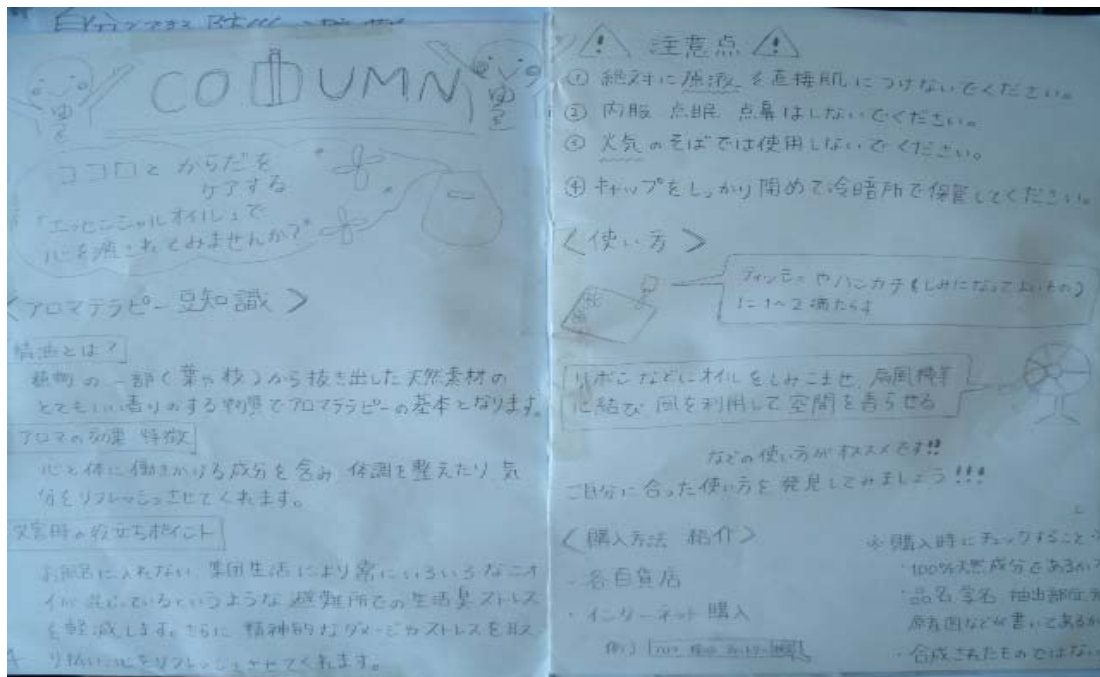 COLUMN
ココロとからだを
ケアする
「エッセンシャルオイル」で
心を癒されてみませんか?
<アロマテラピー豆知識>
精油とは?
植物の一部(葉や枝)から抜き出した天然素材の
とてもいい香りのする物質でアロマテラピーの基本となります。
アロマの効果 特徴
心と体に働きかける成分を含み 体調を整えたり 気
分をリフレッシュさせてくれます。
災害時の役立ちポイント
お風呂に入れない、集団生活により常にいろいろなニオ
イが混じっているというような避難所での生活臭ストレス
を軽減します。さらに 精神的なダメージやストレスを取
り払い、心をリフレッシュさせてくれます。
注意点
① 絶対に原液を直接肌につけないでください。
② 内服 点眼 点鼻はしないでください。
③ 火気のそばでは使用しないでください。
④ キャップをしっかり閉めて冷暗所で保管してください。
<使い方>
ティッシュやハンカチ(しみになってよいもの)
に1~2滴たらす
リボンなどにオイルをしみこませ、扇風機等
に結び 風を利用して空間を香らせる
などの使い方がオススメです!!
ご自分に合った使い方を発見してみましょう!!!
<購入方法 紹介>
・各百貨店
・インターネット購入
例)
※購入時にチェックすること
・100%天然成分であるか
・品名 学名 抽出部位
原産国などが書いてあるか
・合成されたものではない